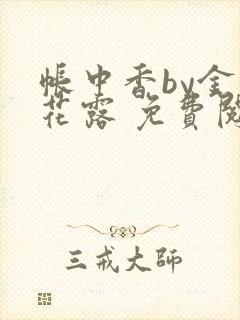 帳中香by金
花露 免費閱
三戒大師